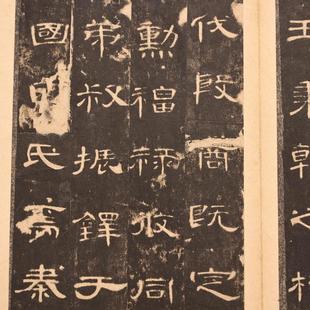 王秉乾之
伐殷商既定
勳福祿攸同
弟叔振鐸于
國因氏焉秦